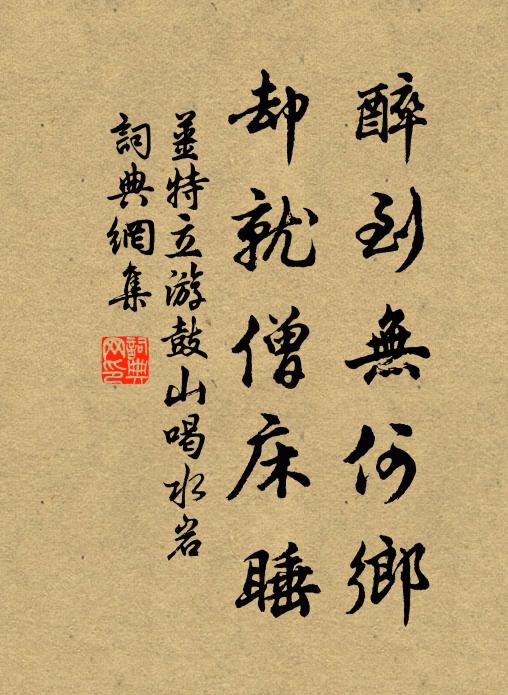 醉到無何鄉
却就僧床睡
姜特立游鼓山喝水岩
詞典網集
詞典
网印